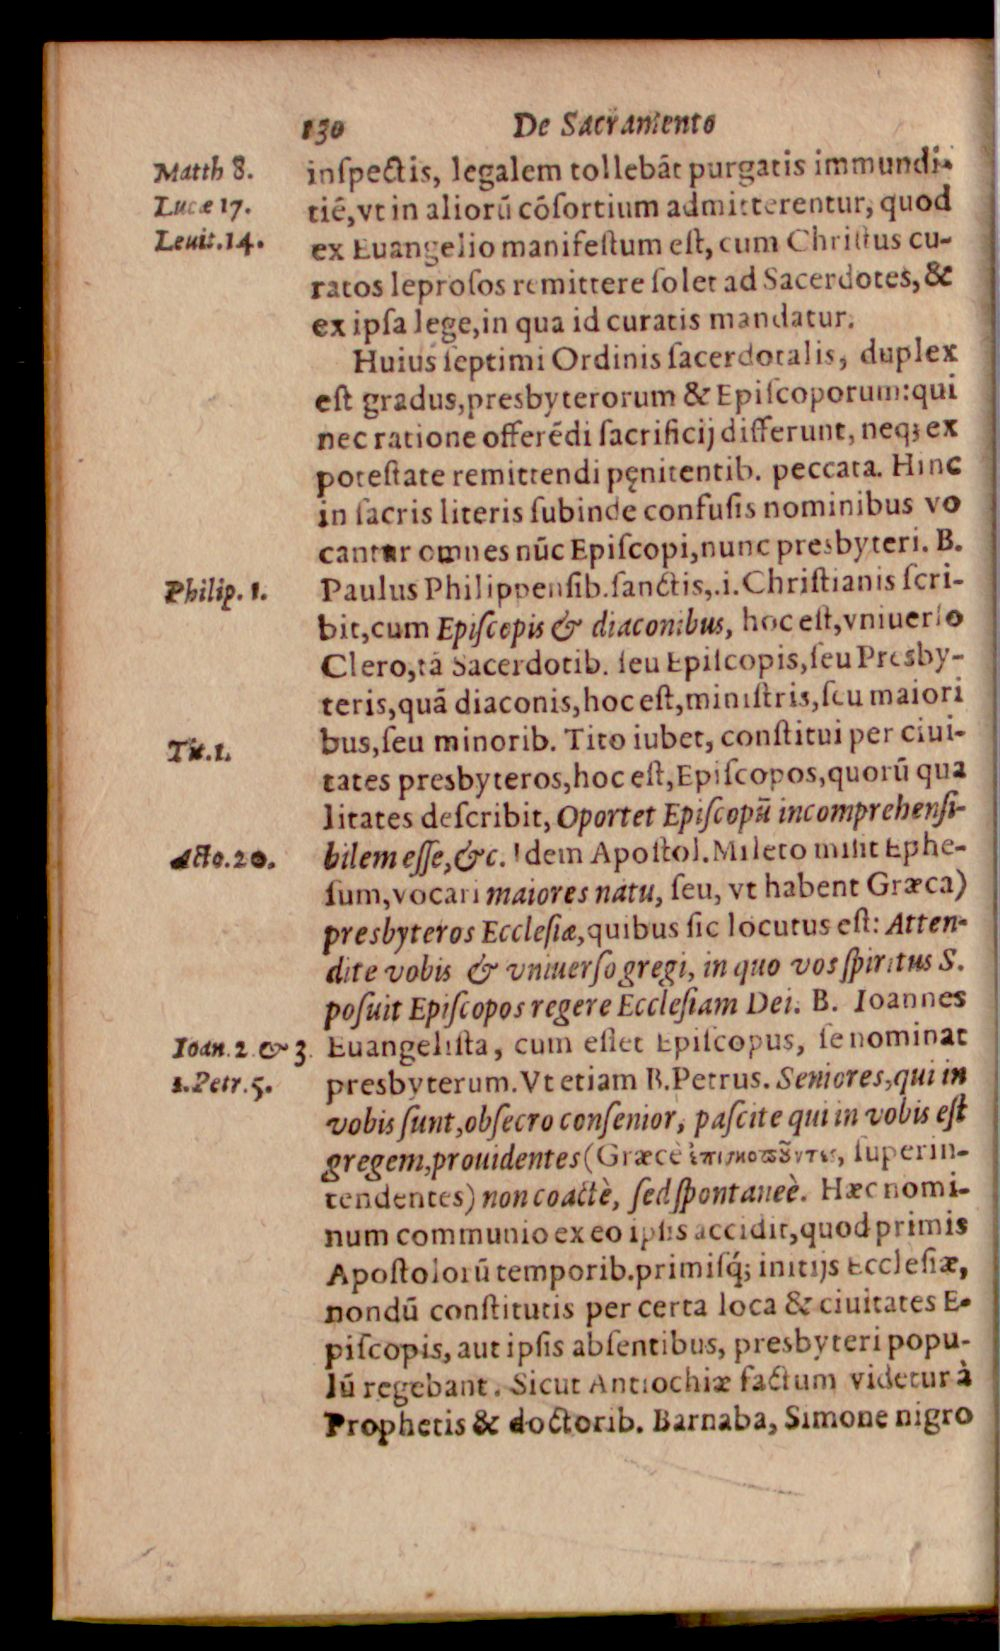 130 De Sacramento
Matth 8.
Lucæ 17.
Leuit.14.
inſpectis, legalem tollebãt purgatis immundi-
tiẽ,vt in aliorũ cõſortium admitterentur, quod
ex Euangelio manifeſtum eſt, cum Chriſtus cu-
ratos leproſos remittere ſolet ad Sacerdotes, &
ex ipſa lege, in qua id curatis mandatur.
Huius ſeptimi Ordinis ſacerdotalis, duplex
eſt gradus, presbyterorum & Epiſcoporum: qui
nec ratione offerẽdi ſacrificij differunt, neq; ex
poteſtate remittendi pęnitentib. peccata. Hinc
in ſacris literis ſubinde confuſis nominibus vo
cantur omnes nũc Epiſcopi, nunc presbyteri. B.
Philip. 1.
Paulus Philippenſib. ſanctis,.i. Chriſtianis ſcri-
bit, cum Epiſcopis & diaconibus, hoc eſt, vniuerſo
Clero, tã Sacerdotib. ſeu Epiſcopis, ſeu Presby-
teris, quã diaconis, hoc eſt, miniſtris, ſeu maiori
Tit.1.
bus, ſeu minorib. Tito iubet, conſtitui per ciui-
tates presbyteros, hoc eſt, Epiſcopos, quorũ qua
litates deſcribit, Oportet Epiſcopũ incomprehenſi-
Acto.20.
bilem eſſe, &c. Idem Apoſtol. Mileto miſit Ephe-
ſum, vocari maiores natu, ſeu, vt habent Græca)
presbyteros Eccleſiæ, quibus ſic locutus eſt: Atten-
dite vobis & vniuerſo gregi, in quo vos ſpiritus S.
poſuit Epiſcopos regere Eccleſiam Dei. B. Ioannes
Ioan. 2. & 3.
Euangeliſta, cum eſſet Epiſcopus, ſe nominat
1.Petr.5.
presbyterum. Vt etiam B. Petrus. Seniores, qui in
vobis ſunt, obſecro conſenior, paſcite qui in vobis eſt
gregem, prouidentes (Græcè ἐπισκοποῦντες, ſuperin-
tendentes) non coactè, ſed ſpontaneè. Hæc nomi-
num communio ex eo ipſis accidit, quod primis
Apoſtolorũ temporib. primiſq́; initijs Eccleſiæ,
nondũ conſtitutis per certa loca & ciuitates E-
piſcopis, aut ipſis abſentibus, presbyteri popu-
lũ regebant. Sicut Antiochiæ factum videtur à
Prophetis & doctorib. Barnaba, Simone nigro